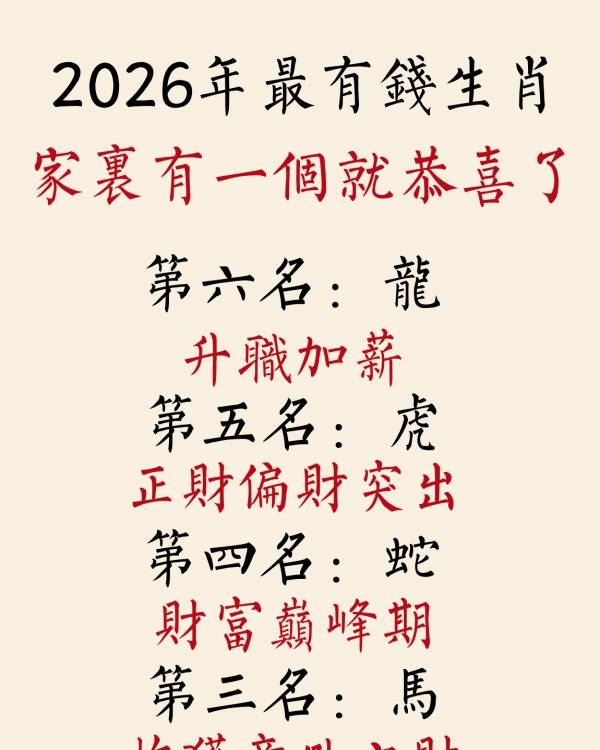 2026年最有錢生肖
家裏有一個就恭喜了
第六名：龍
升職加薪
第五名：虎
正財偏財突出
第四名：蛇
財富巔峰期
第三名：馬